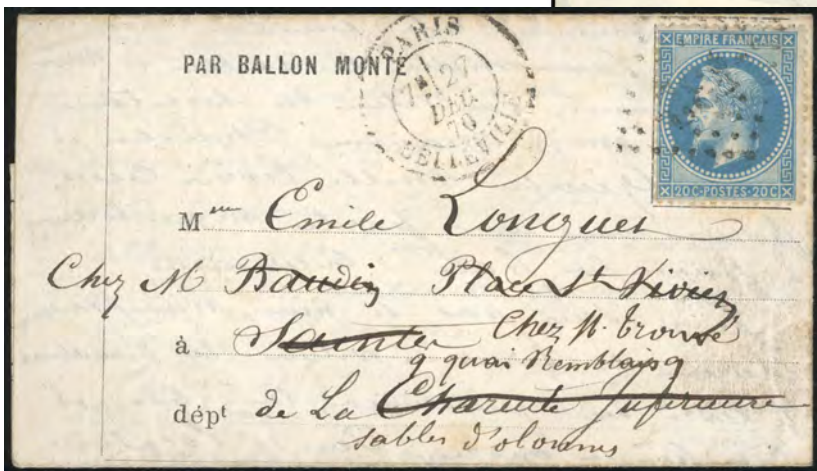 PAR BALLON MONTÉ
PARIS
7E 27
DEC.
70
BELLEVILLE
EMPIRE FRANÇAIS
20C·POSTES·20C
Mme Emile Longuet
Chez M Baudin Place St Vivien
à Saintes Chez M. Trousé
9 quai Remblais 9
dépt de La Charente Inférieure
sables d'olonnes